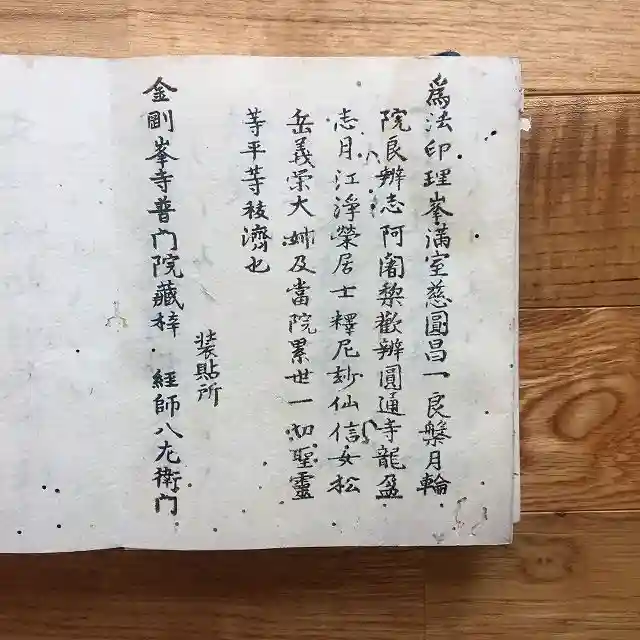 為法印理峯滿室慈圓昌一良槃月輪
院良辨志阿闍梨歡辨圓通寺龍盈
志月江淨榮居士釋尼妙仙信女松
岳義榮大姉及當院累世一切聖靈
等平等拔濟也
装貼所
金剛峯寺普門院藏梓 経師八左衛門